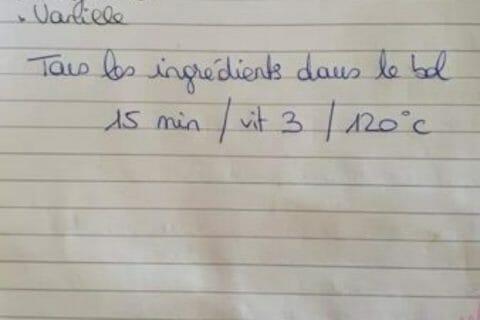 . Vanille
Tous les ingrédients dans le bol
15 min / vit 3 / 120°c